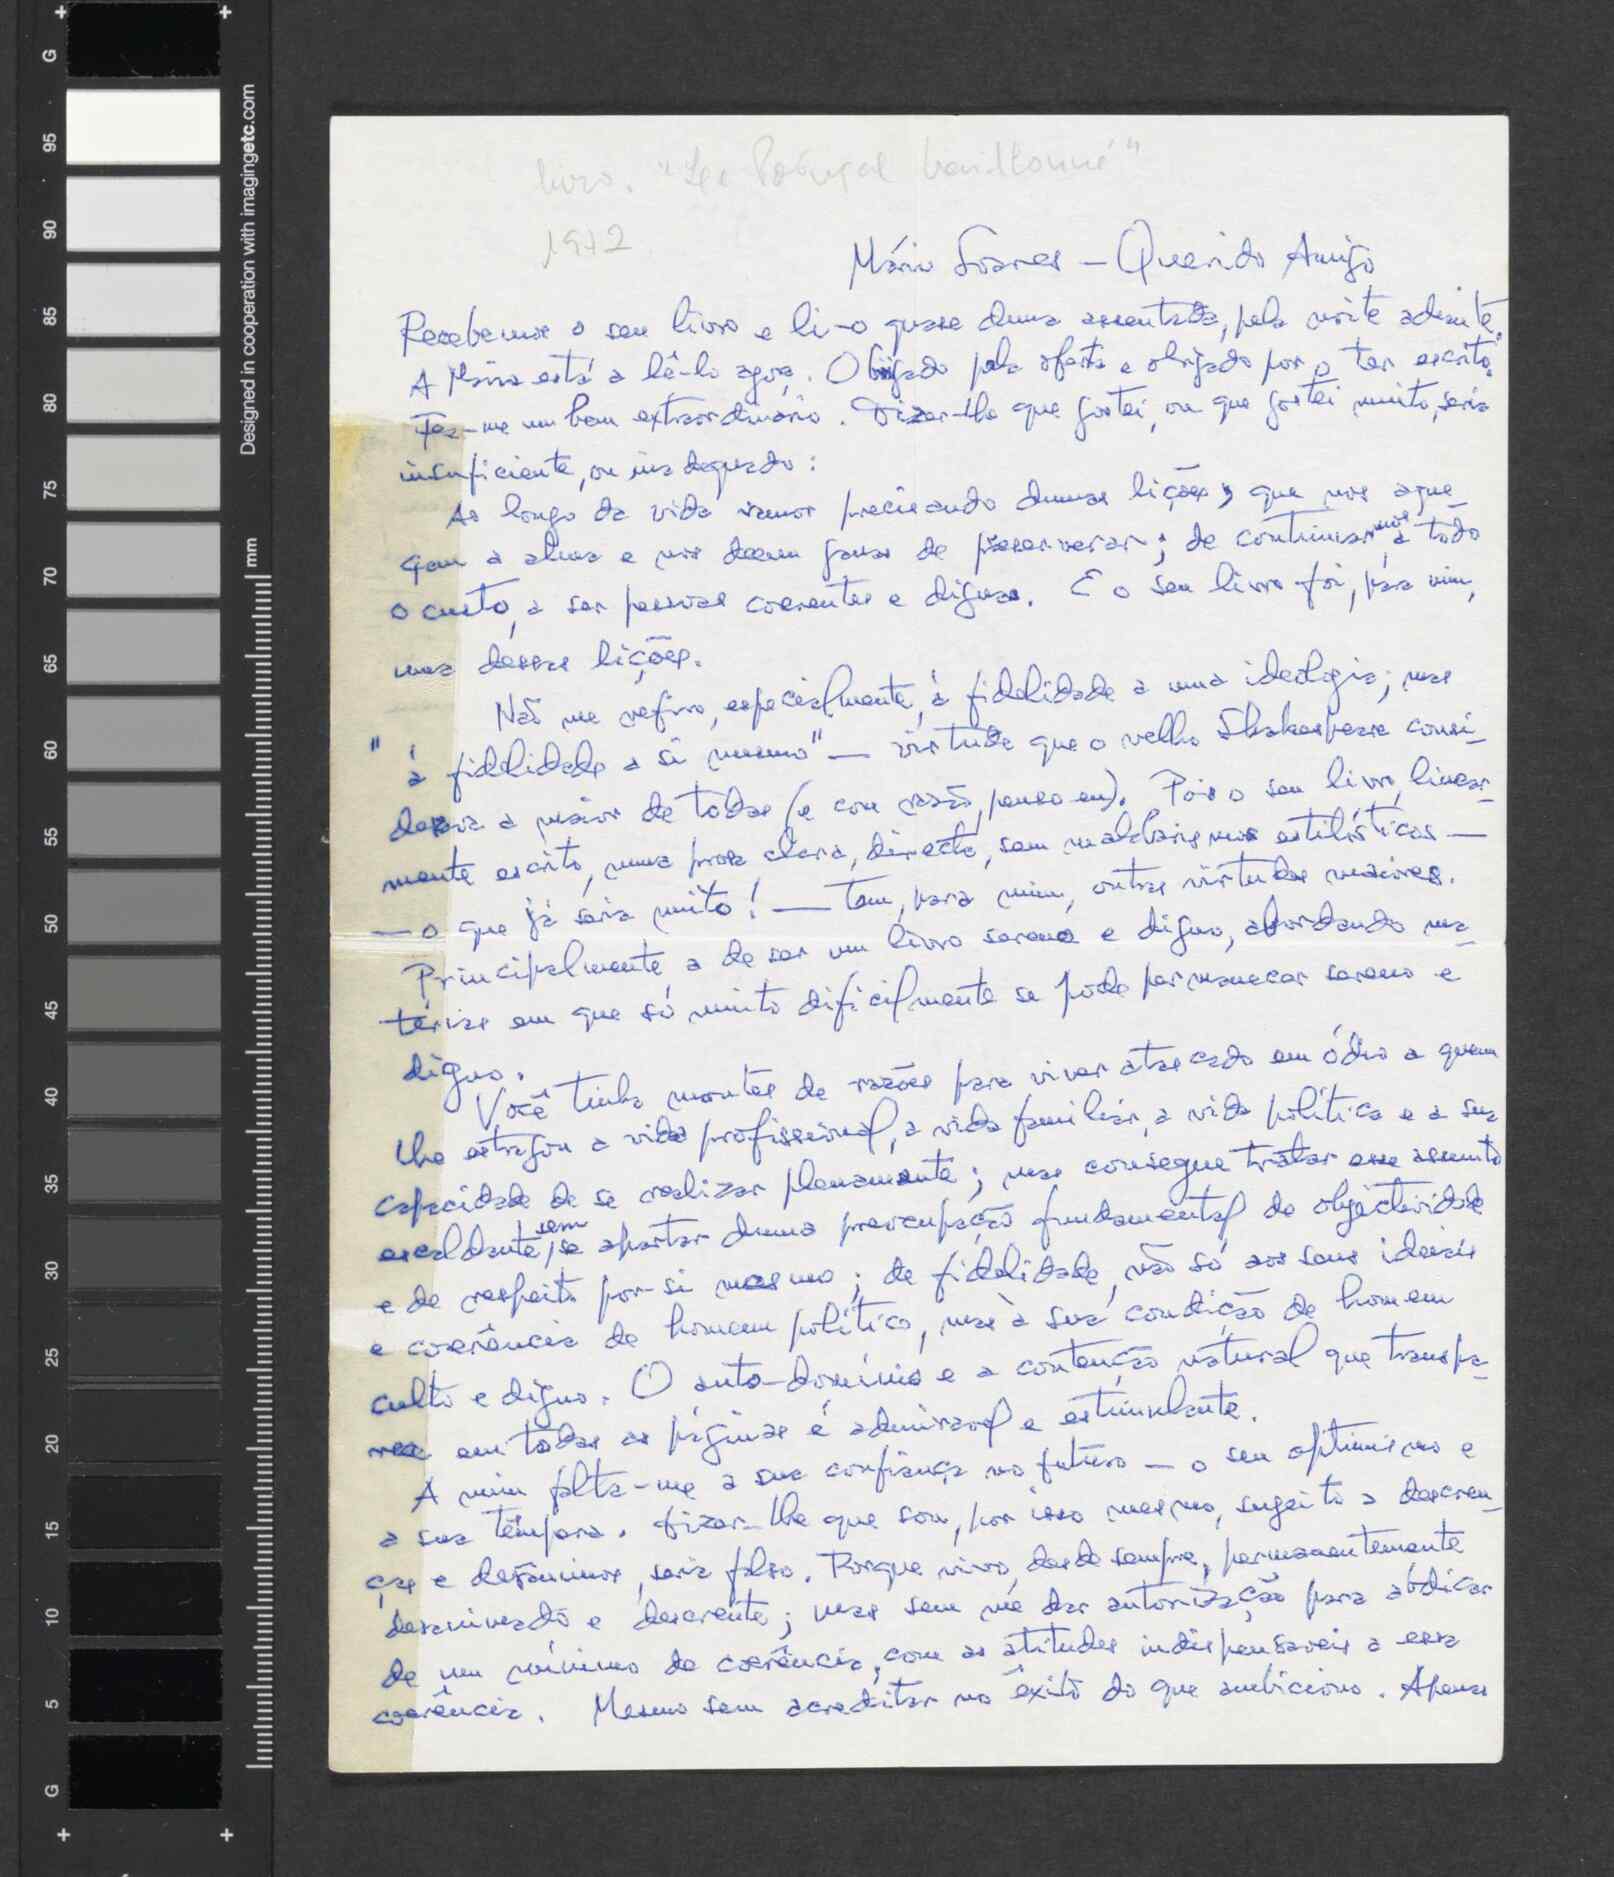 livro. "Le Portugal baillonné"
1972
Mário Soares — Querido Amigo
Recebemos o seu livro e li-o quase duma assentada, pela noite adiante.
A Maria está a lê-lo agora. Obrigado pela oferta e obrigado por o ter escrito.
Fez-me um bem extraordinário. Dizer-lhe que gostei, ou que gostei muito, seria
insuficiente, ou inadequado:
Ao longo da vida vamos precisando dumas lições, que nos aque-
çam a alma e nos deem ganas de perseverar; de continuarmos, a todo
o custo, a ser pessoas coerentes e dignas. E o seu livro foi, para mim,
uma dessas lições.
Não me refiro, especialmente, à fidelidade a uma ideologia; mas
"à fidelidade a si mesmo" — virtude que o velho Shakespeare consi-
derava a maior de todas (e com razão, penso eu). Pois o seu livro, linear-
mente escrito, numa prosa clara, directa, sem malabarismos estilísticos —
— o que já seria muito! — tem, para mim, outras virtudes maiores.
Principalmente, a de ser um livro sereno e digno, abordando ma-
térias em que só muito dificilmente se pode permanecer sereno e
digno.
Você tinha montes de razões para viver atascado em ódio a quem
lhe estragou a vida profissional, a vida familiar, a vida política e a sua
capacidade de se realizar plenamente; mas consegue tratar esse assunto
escaldante, sem se apartar duma preocupação fundamental de objectividade
e de respeito por si mesmo; de fidelidade, não só aos seus ideais
e coerência de homem político, mas à sua condição de homem
culto e digno. O auto-domínio e a contenção natural que transpa-
rece em todas as páginas é admirável e estimulante.
A mim falta-me a sua confiança no futuro — o seu optimismo e
a sua têmpera. Dizer-lhe que sou, por isso mesmo, sujeito a descren-
ças e desânimos, seria falso. Porque vivo, desde sempre, permanentemente
desanimado e descrente; mas sem me dar autorização para abdicar
de um mínimo de coerência, com as atitudes indispensáveis a essa
coerência. Mesmo sem acreditar no êxito do que ambiciono. Apenas
G
95
90
85
80
75
70
65
60
55
50
45
40
35
30
25
20
15
10
5
G
Designed in cooperation with imagingetc.com
mm